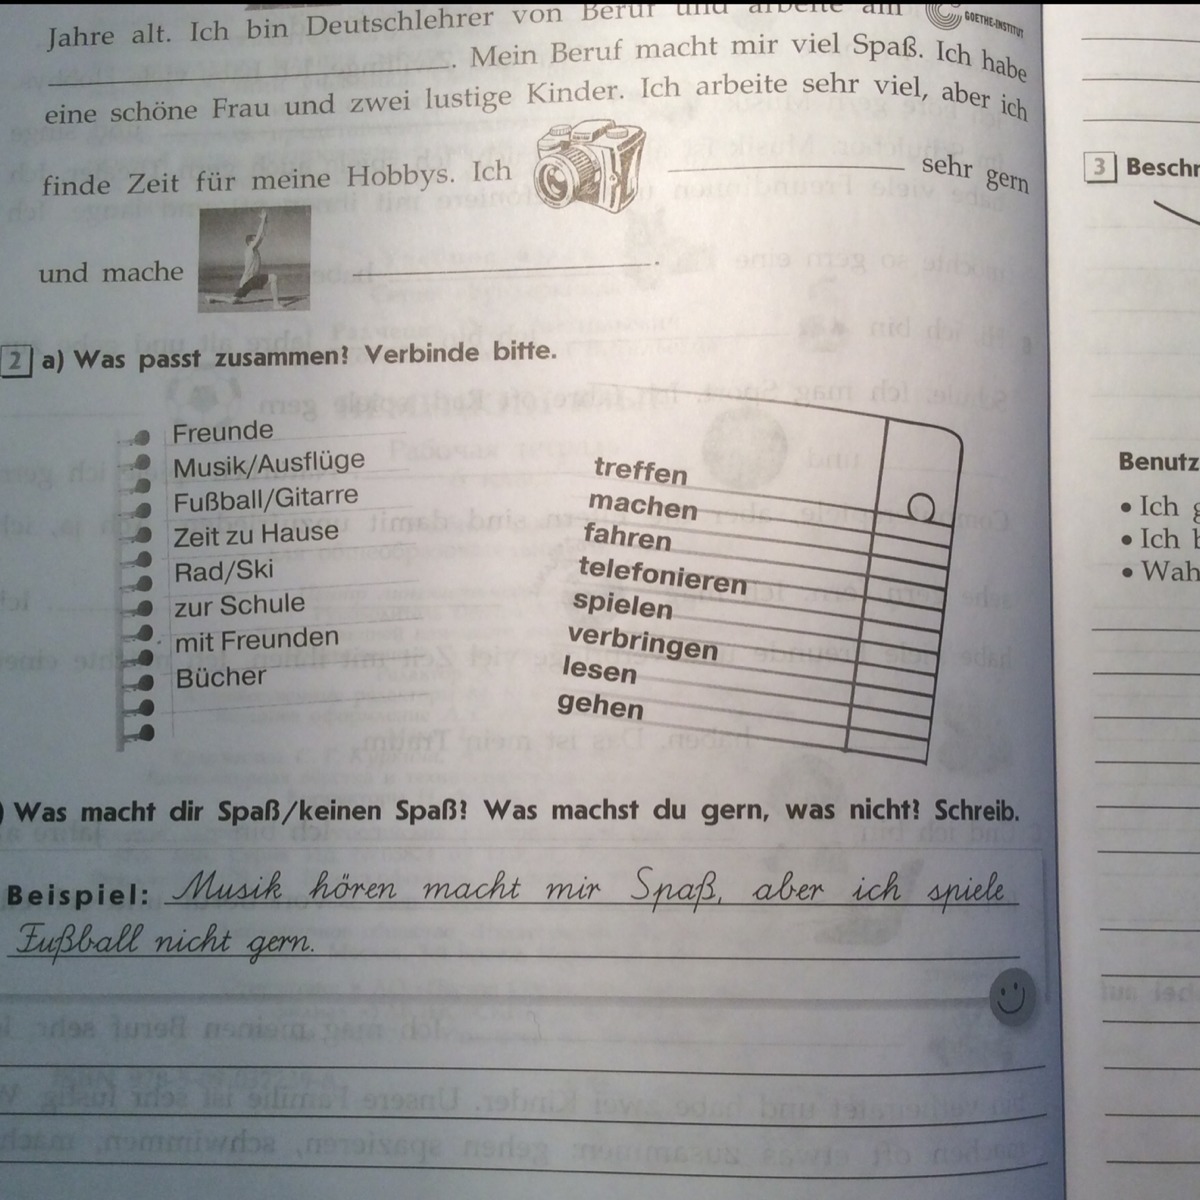 Jahre alt. Ich bin Deutschlehrer von Beruf und arbeite am GOETHE-INSTITUT
. Mein Beruf macht mir viel Spaß. Ich habe
eine schöne Frau und zwei lustige Kinder. Ich arbeite sehr viel, aber ich
finde Zeit für meine Hobbys. Ich sehr gern
und mache .
2 a) Was passt zusammen? Verbinde bitte.
Freunde
Musik/Ausflüge
Fußball/Gitarre
Zeit zu Hause
Rad/Ski
zur Schule
mit Freunden
Bücher
treffen
machen
fahren
telefonieren
spielen
verbringen
lesen
gehen
) Was macht dir Spaß/keinen Spaß? Was machst du gern, was nicht? Schreib.
Beispiel: Musik hören macht mir Spaß, aber ich spiele
Fußball nicht gern.
3 Beschr
Benutz
• Ich g
• Ich b
• Wah